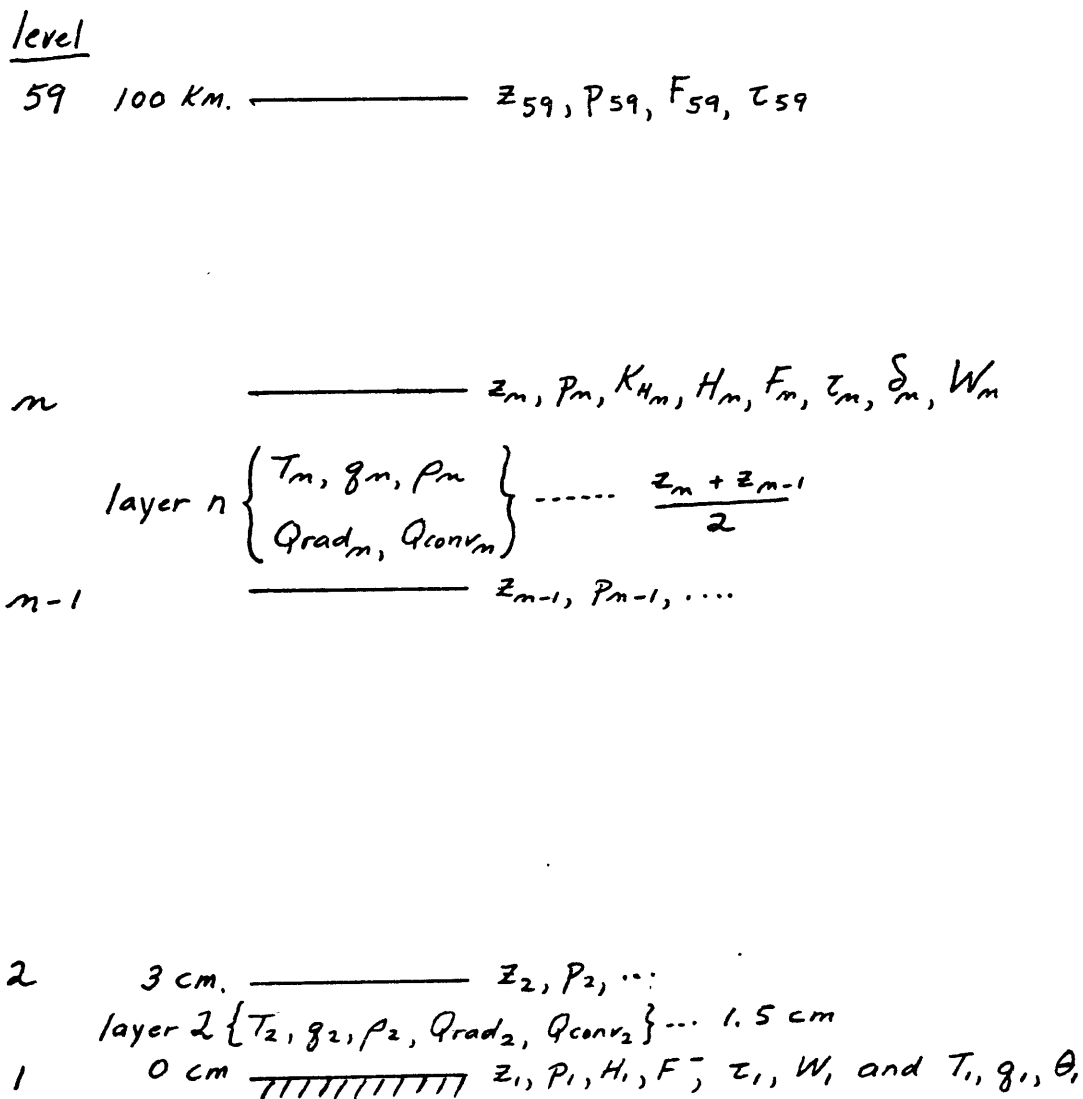 level
59 100 Km. z₅₉, p₅₉, F₅₉, τ₅₉
n zₙ, pₙ, K_Hₙ, Hₙ, Fₙ, τₙ, δₙ, Wₙ
layer n { Tₙ, qₙ, ρₙ
Qradₙ, Qconvₙ } ...... (zₙ + zₙ₋₁)/2
n-1 zₙ₋₁, pₙ₋₁, ....
2 3 cm. z₂, p₂, ...
layer 2 {T₂, q₂, ρ₂, Qrad₂, Qconv₂} ... 1.5 cm
1 0 cm z₁, p₁, H₁, F⁻, τ₁, W₁ and T₁, q₁, θ₁